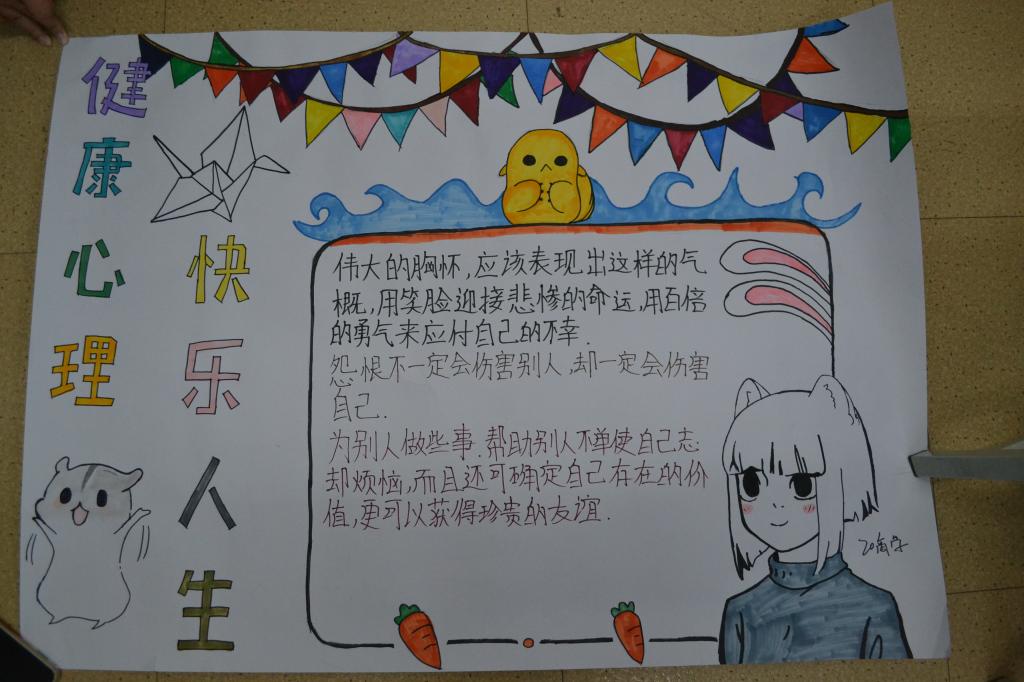 健康心理
快乐人生
伟大的胸怀,应该表现出这样的气
概,用笑脸迎接悲惨的命运,用百倍
的勇气来应付自己的不幸.
怨恨不一定会伤害别人,却一定会伤害
自己.
为别人做些事.帮助别人不单使自己忘
却烦恼,而且还可确定自己存在的价
值,更可以获得珍贵的友谊.